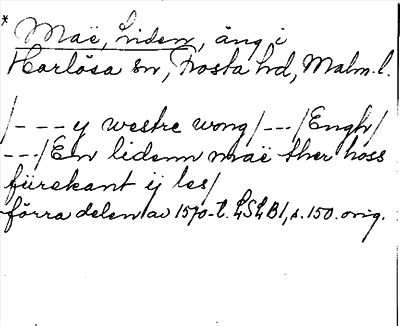 * Maë, Liden, äng i
Harlösa sn, Frosta hd, Malm. l.
/---y westre wong/---/Engh/
---/En lidenn maë ther hoss
fürekant ij les/
förra delen av 1570-t. LSLB1, s. 150. orig.